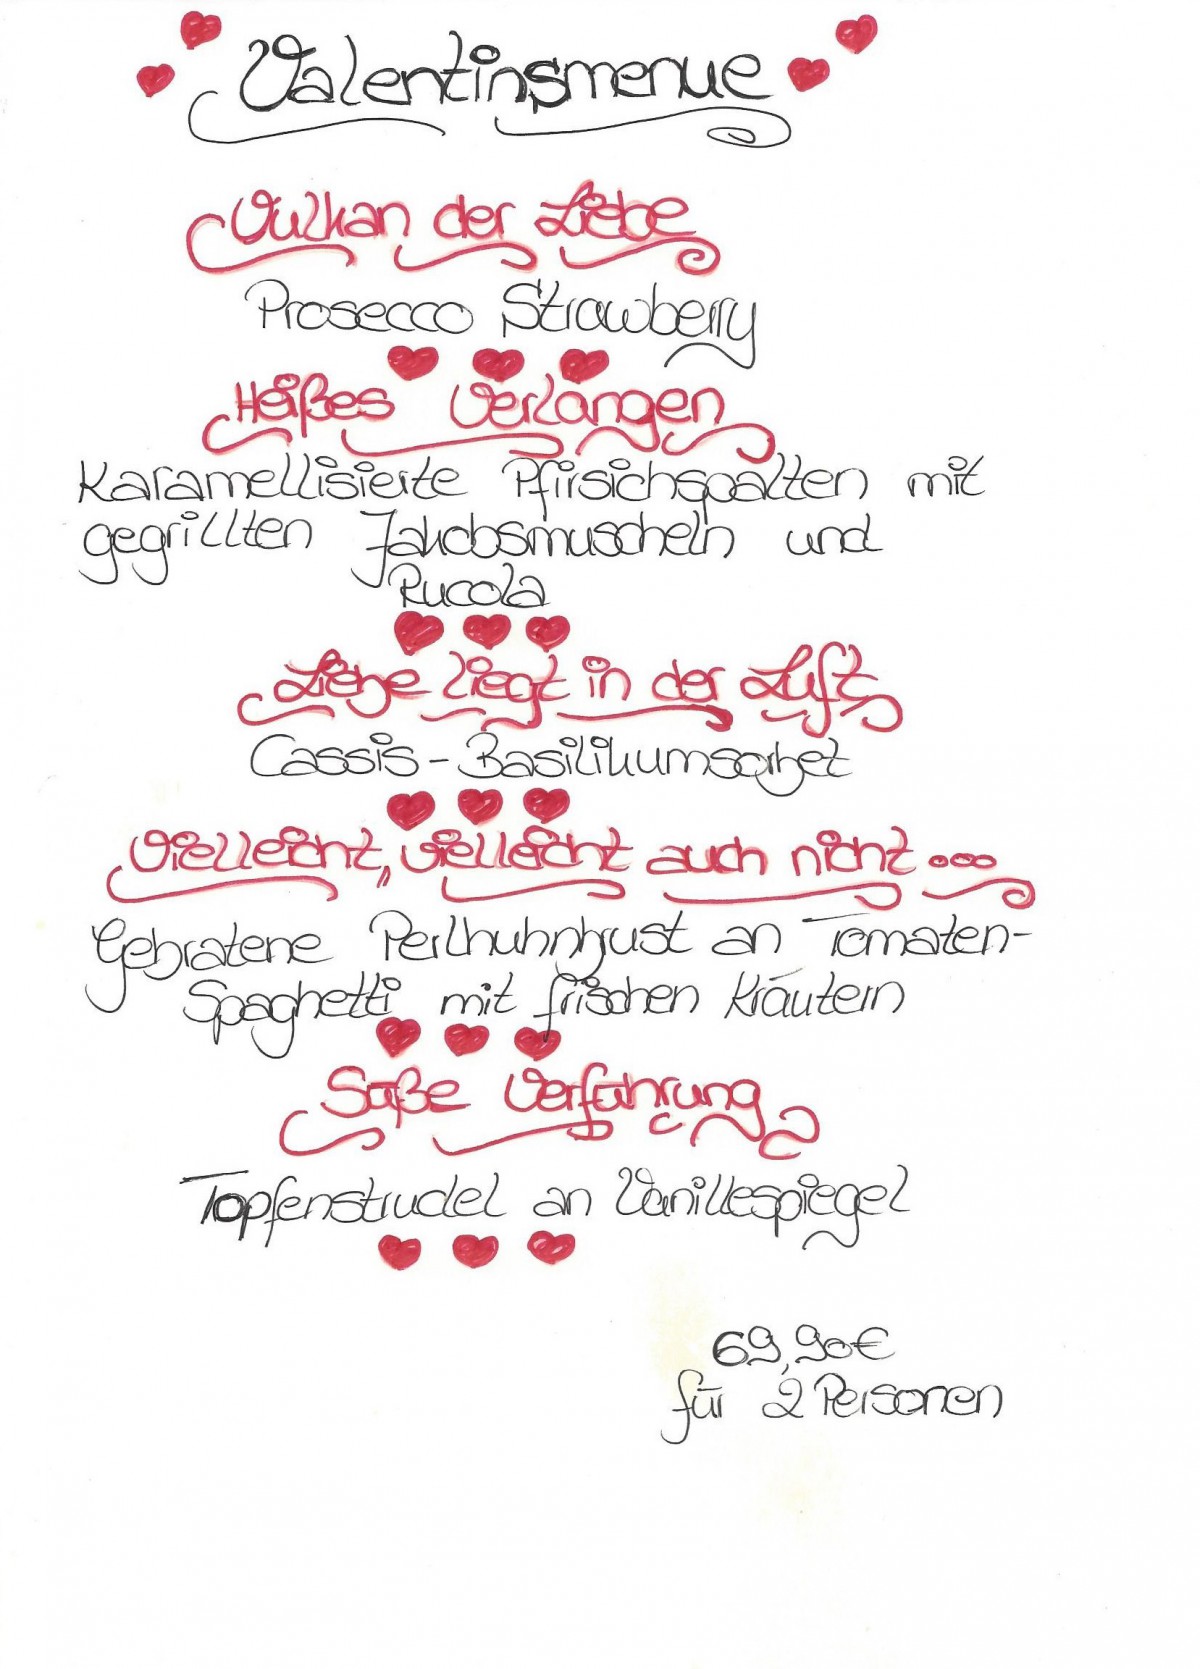 Valentinsmenue
Vulkan der Liebe
Prosecco Strawberry
Heißes Verlangen
Karamellisierte Pfirsichspalten mit
gegrillten Jakobsmuscheln und
Rucola
Liebe liegt in der Luft
Cassis-Basilikumsorbet
Vielleicht, vielleicht auch nicht...
Gebratene Perlhuhnbrust an Tomaten-
Spaghetti mit frischen Kräutern
Süße Verführung
Topfenstrudel an Vanillespiegel
69,90€
für 2 Personen